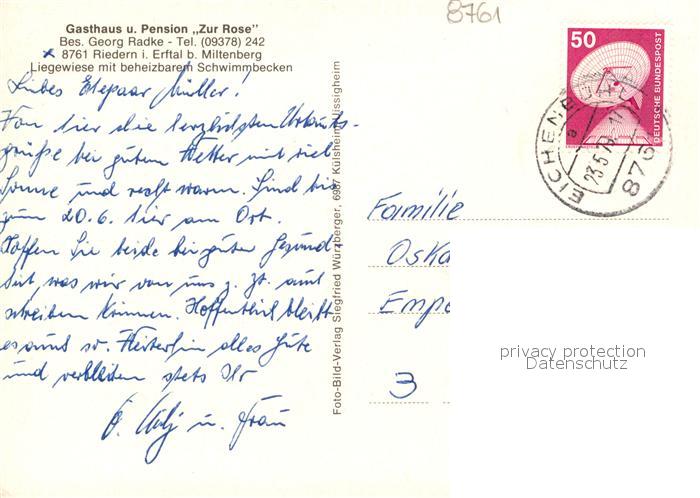 8761
Gasthaus u. Pension „Zur Rose"
Bes. Georg Radke - Tel. (09378) 242
x 8761 Riedern i. Erftal b. Miltenberg
Liegewiese mit beheizbarem Schwimmbecken
Liebes Ehepaar Müller!
Von hier die herzlichsten Urlaubs-
grüße bei gutem Wetter mit viel
Sonne und recht warm. Sind bis
zum 20.6. hier am Ort.
Hoffen Sie beide bei guter Gesund-
heit, was wir von uns z. Zt. auch
schreiben können. Hoffentlich bleibt
es auch so. Weiterhin alles Gute
und verbleiben stets Ihr
u. Frau
Foto-Bild-Verlag Siegfried Würzberger, 6987 Külsheim/Uissigheim
50
DEUTSCHE BUNDESPOST
EICHENBÜHL
a
23.5.79
876
Familie
Oska
Empe
3
privacy protection
Datenschutz